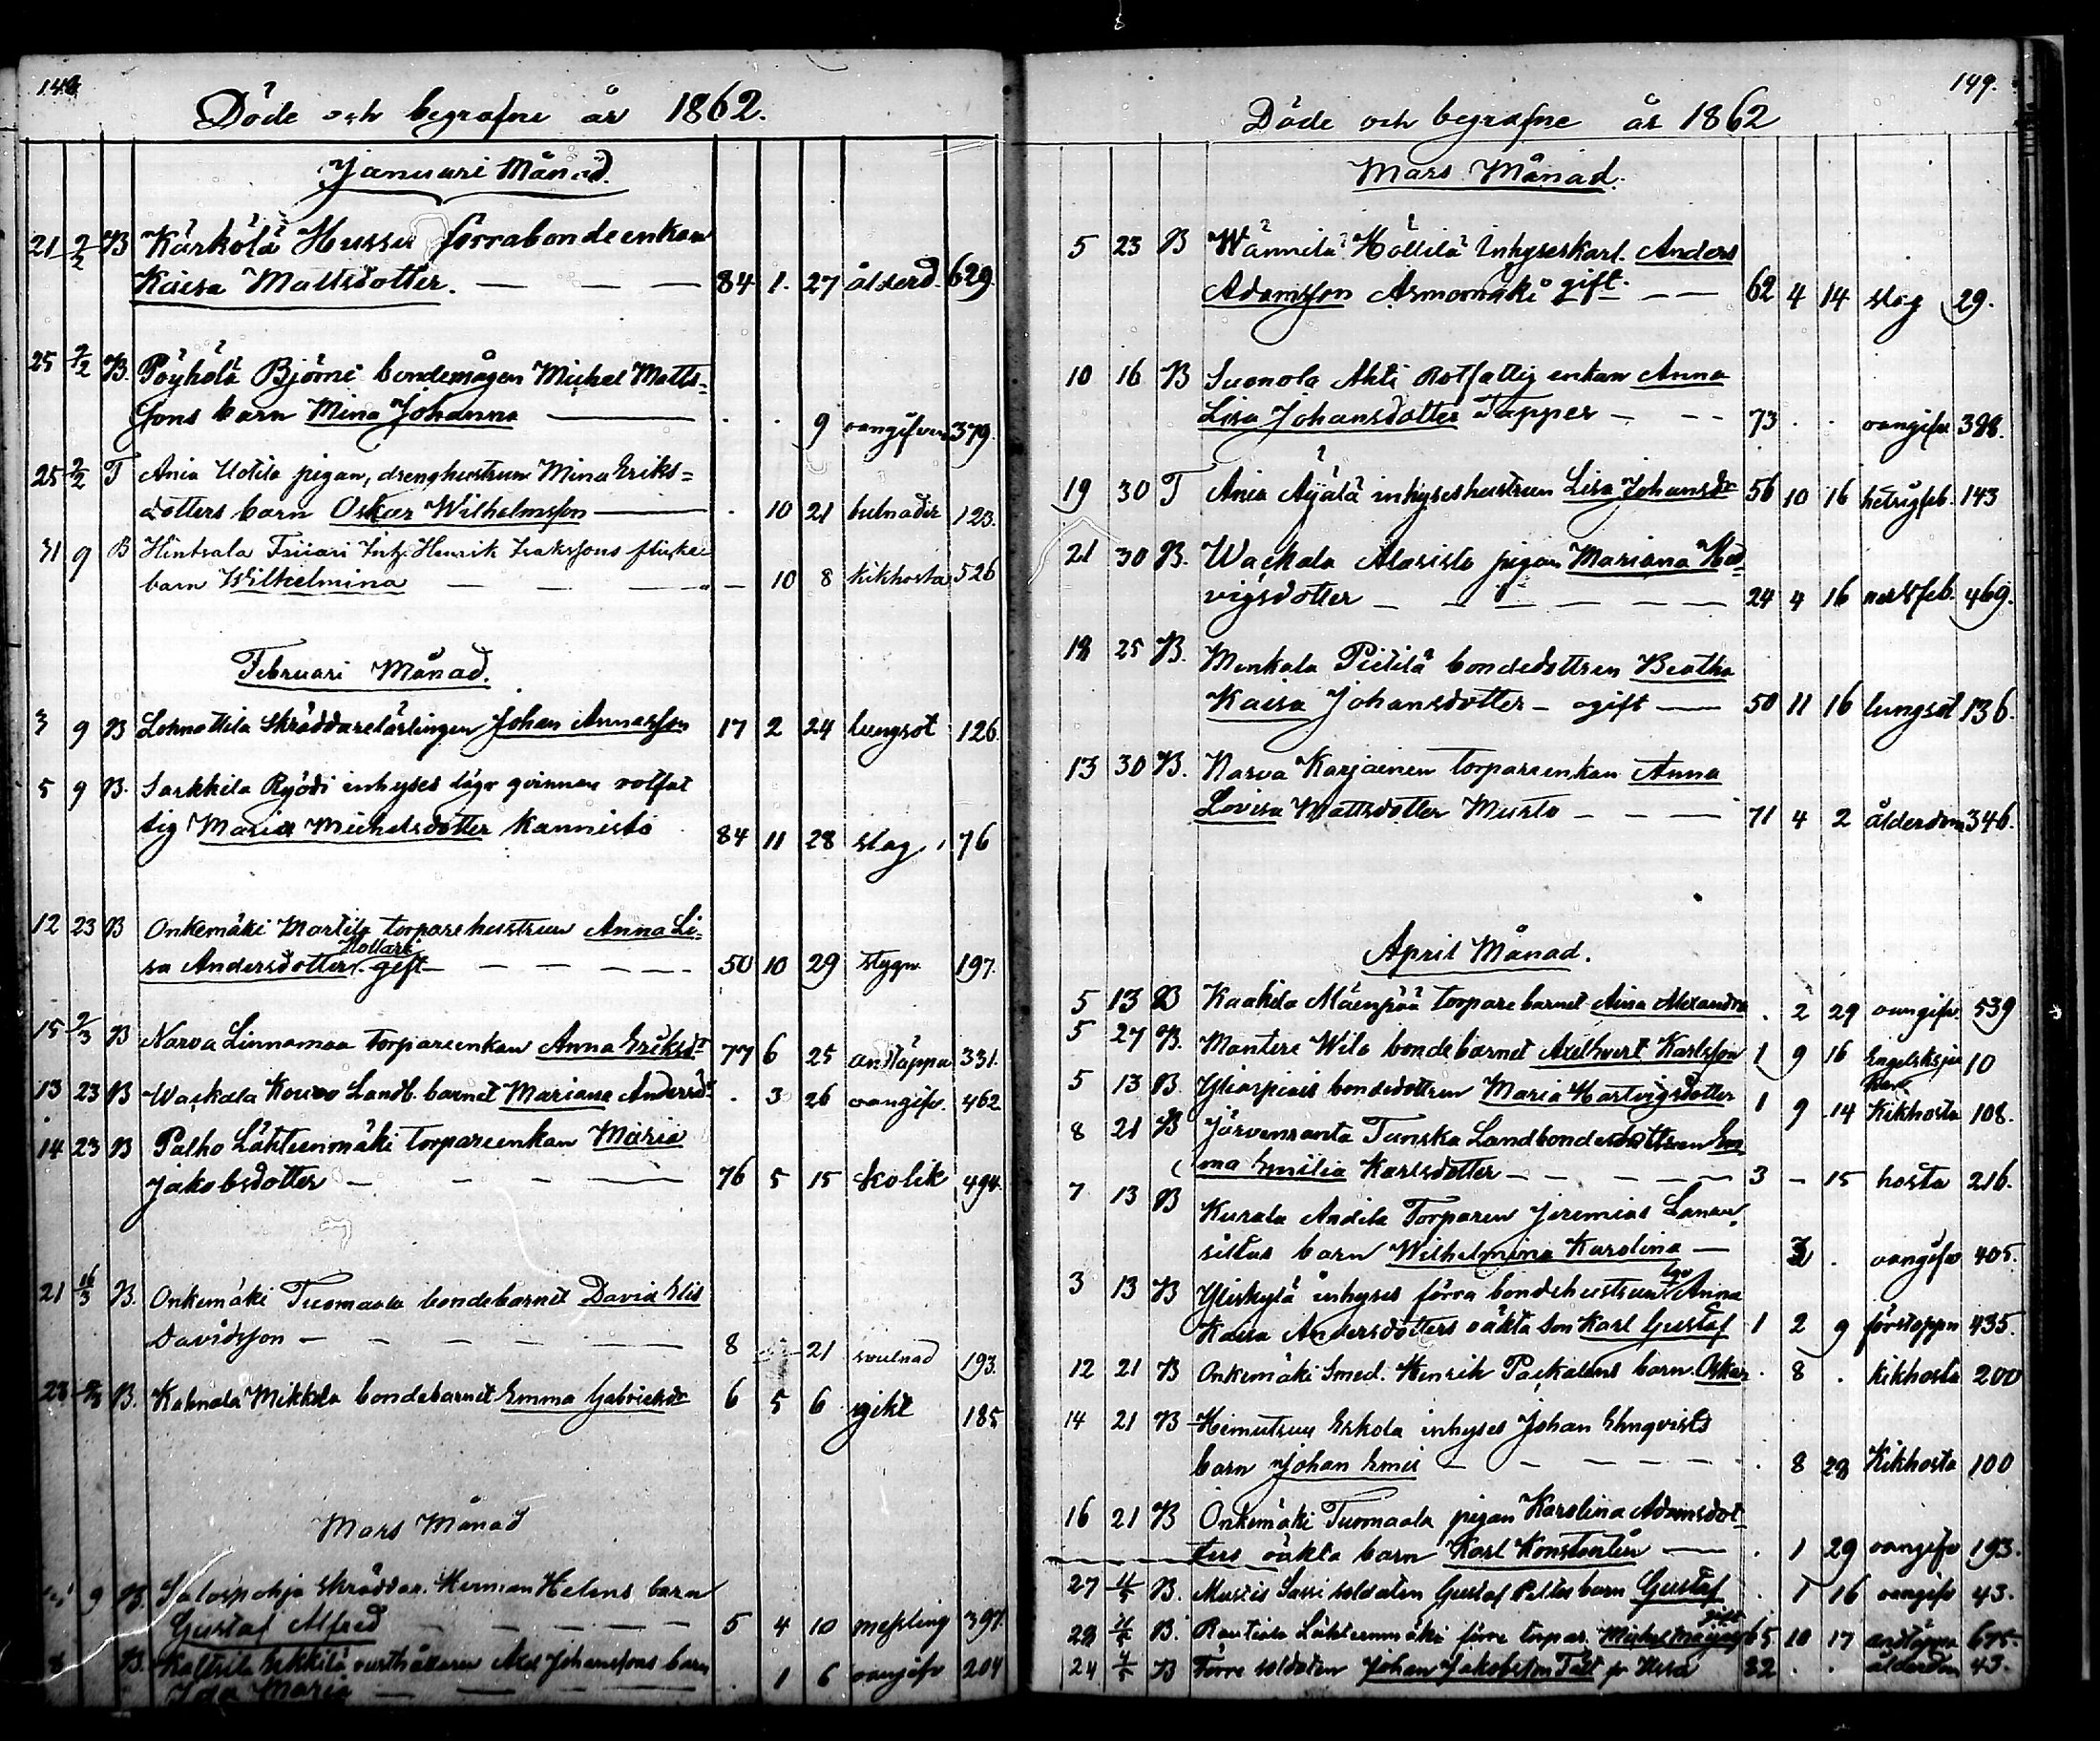 Döde och begrafne år 1862.
Januari Månad.
21 2/2 B Kärkölä Hussu förrabondeenkan
Kaisa Mattsdotter. — — — 84 1. 27 ålderd. 629.
25 2/2 B. Pöyhölä Björni bondemågen Michel Matts=
sons barn Mina Johanna — . . 9 oangifven 379.
25 2/2 T Ania Uotila pigan, drenghustrun Mina Eriks=
dotters barn Oskar Wilhelmsson — . 10 21 123.
31 9 B Hintsala Henrik Isakssons
barn Wilhelmina — — — — 10 8 kikhosta 526
Februari Månad.
3 9 B Skräddarelärlingen Johan Annasson 17 2 24 lungsot 126.
5 9 B. Sarkkila Ryödi inhyses qvinnan rotfat
tig Maria Michelsdotter Kannisto 84 11 28 slag 76
12 23 B Onkemäki Martila torparehustrun Anna Li=
Mollari
sa Andersdotter gift — — — 50 10 29 stygn 197.
15 2/3 B Narva Linnamaa torpareenkan Anna Eriksdr 77 6 25 andtäppa 331.
13 23 B Wackala Kouvo Landb. barnet Mariana Andersdr . 3 26 oangifv. 462
14 23 B Palho Lähteenmäki torpareenkan Maria
Jakobsdotter — — — — 76 5 15 kolik 494.
21 16/3 B. Onkemäki Tuomaala bondebarnet David Elis
Davidsson — — — — 8 21 193.
B. Mikkola bondebarnet Emma Gabrielsdr 6 5 6 gikt 185
Mars Månad
9 B. Salospohja Skräddar. Herman Helins barn
Gustaf Alfred — — — — 5 4 10 messling 397.
8 B. Kaltsila Erkkilä Axel Johanssons barn . 1 6 oangifv 204
Ida Maria — — —
149.
Döde och begrafne år 1862
Mars Månad.
5 23 B Wännilä Höllilä Inhyseskarl. Anders
Adamsson Asmomäki gift. — — 62 4 14 slag 29.
10 16 B Suonola Ahti Rotfattig enkan Anna
Lisa Johansdotter Tapper — — — 73 . . oangifv 398.
19 30 T Ania Äyälä inhyseshustrun Lisa Johansdr 56 10 16 hetsigfeb. 143
21 30 B. Wackala Alasisto pigan Mariana Hed=
vigsdotter — — — — — 24 4 16 nervfeb. 469.
18 25 B. Menkala Piitilä bondedottren Beatha
Kaisa Johansdotter — ogift — 50 11 16 lungsot 136.
13 30 B. Narva Karjainen torpareenkan Anna
Lovisa Mattsdotter Musto — — — 71 4 2 ålderdom 346.
April Månad.
5 13 B Kaakila Mäenpää torparebarnet Aina Alexandra . 2 29 oangifv. 539
5 27 B. Mantere Wilo bondebarnet Karlsson 1 9 16 Engelsksju 10
kan
5 13 B. bondedottren Maria Hartvigsdotter 1 9 14 Kikhosta 108.
8 21 B Järvensanta Tunska Landbondedottren Em
ma Emilia Karlsdotter — — — — 3 — 15 hosta 216.
7 13 B Kurala Andila Torparen Jeremias Lanan
siltas barn Wilhelmina Karolina — . 3 . oangifv 405.
3 13 B Yliskylä inhyses förra bondehustrun Anna
Kaisa Andersdotters oäkta son Karl Gustaf 1 2 9 förstoppn 435.
12 21 B Onkemäki Smed. Henrik Packalens barn. Oskar . 8 . kikhosta 200
14 21 B Heinutsuu Erkola inhyses Johan Elmqvists
barn Johan Emil — — — — . 8 28 Kikhosta 100
16 21 B Onkemäki Tuomaala pigan Karolina Adamsdot=
ters oäkta barn Karl Konstantin — . 1 29 oangifv 193.
27 4/5 B. Mustis Sassi soldaten Gustaf barn Gustaf . 1 16 oangifv 43.
gift
28 4/5 B. Rautiala Lähteenmäki förre torpar. Michel 65 10 17 andtäppa 675.
24 4/5 B Förre soldaten Johan Jakobsson Tält 82 . . ålderdom 43.